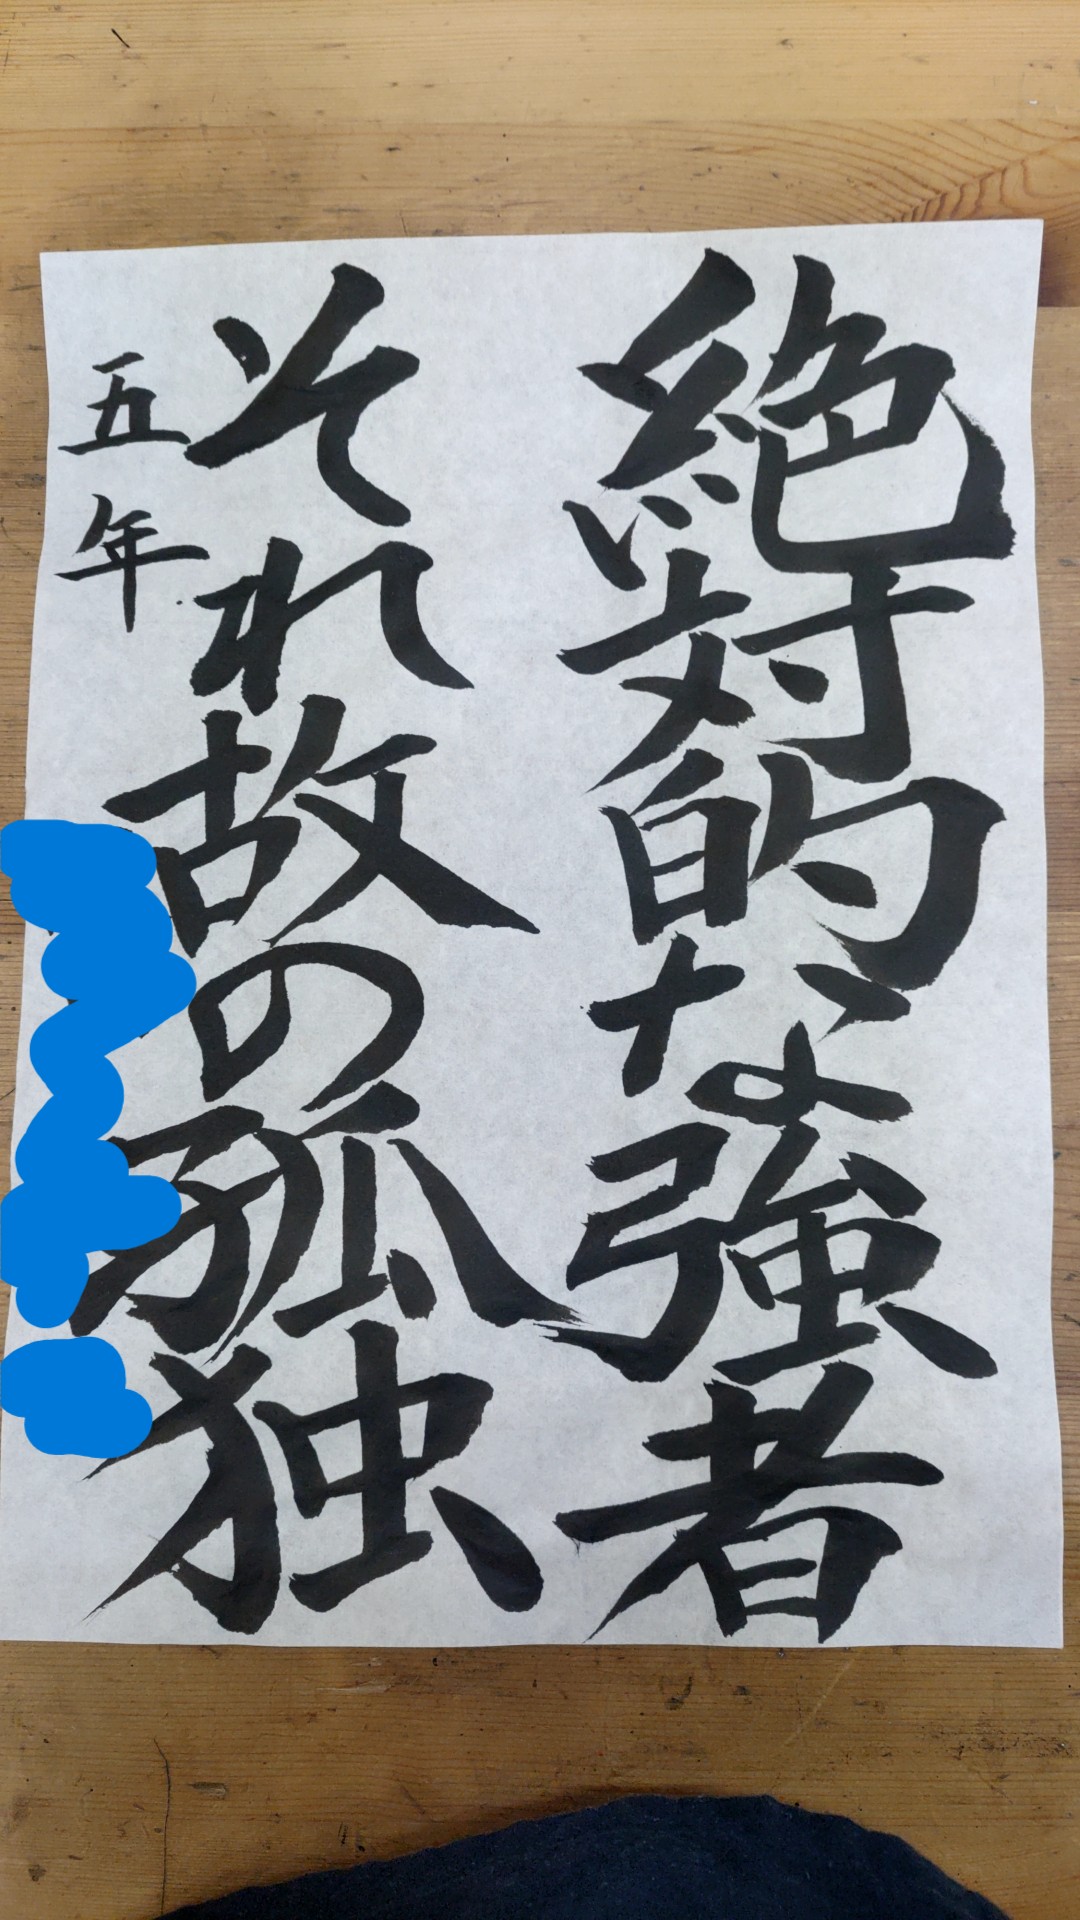 絶対的な強者
それ故の孤独
五年